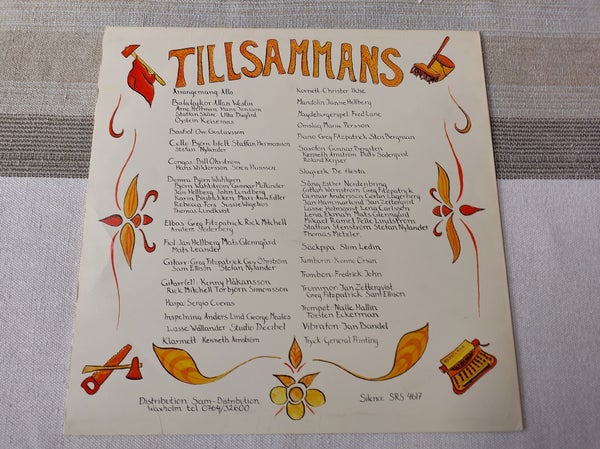 TILLSAMMANS
Arrangemang Alla
Balalajkor Allan Westin
Arne Hoffman Hans Jonsson
Staffan Skäre Ulla Dugård
Öystein Keiseraas
Bastuol Ove Gustavsson
Cello Björn Isfelt Staffan Hermansson
Stefan Nylander
Congas Bill Öhrström
Hans Wiktorsson Sören Hansson
Björn Wahlström Gunnar
Siw Hellberg John Lundberg
Karin Biribakken Mari Ann Eidler
Rebecca Fors Sussie Wieghus
Thomas Lindkvist
Elbas Greg Fitzpatrick Rick Mitchell
Anders Söderberg
Fiol Jan Hellberg Mats Glenngård
Mats Leander
Gitarr Greg Fitzpatrick Guy Öhrström
Sam Ellison Stefan Nylander
Gitarr(el) Kenny Håkansson
Rick Mitchell Torbjörn Simonsson
Harpa Sergio Cuevas
Inspelning Anders Lind George Meales
Lasse Wållander Studio Decibel
Klarinett Kenneth Arnström
Distribution Sam-Distribution
Waxholm tel 0764/32600
Kornett Christer
Mandolin Janne Hellberg
Magdeburgerspel Fred Lane
Omslag Maria Persson
Piano Greg Fitzpatrick Sten Bergman
Saxofon Gunnar Bergsten
Kenneth Arnström Mats Söderqvist
Roland Keijser
Slagverk De flesta
Sång Ester Nordenbring
Göran Vennström Greg Fitzpatrick
Gunnar Andersson Göran Lagerberg
San Hammarlund San Zetterqvist
Lasse Holmqvist Lena Carlsson
Lena Ekman Mats Glenngård
Mikael Ramel Pelle Lindström
Staffan Stenström Stefan Nylander
Thomas Metzler
Säckpipa Slim Lidén
Tamburin Yvonne Olson
Trombon Fredrick John
Trummor Jan Zetterqvist
Greg Fitzpatrick Sam Ellison
Trumpet Nalle Hallin
Torsten Eckerman
Vibrafon Jan Bandel
Tryck General Printing
Silence SRS 4617